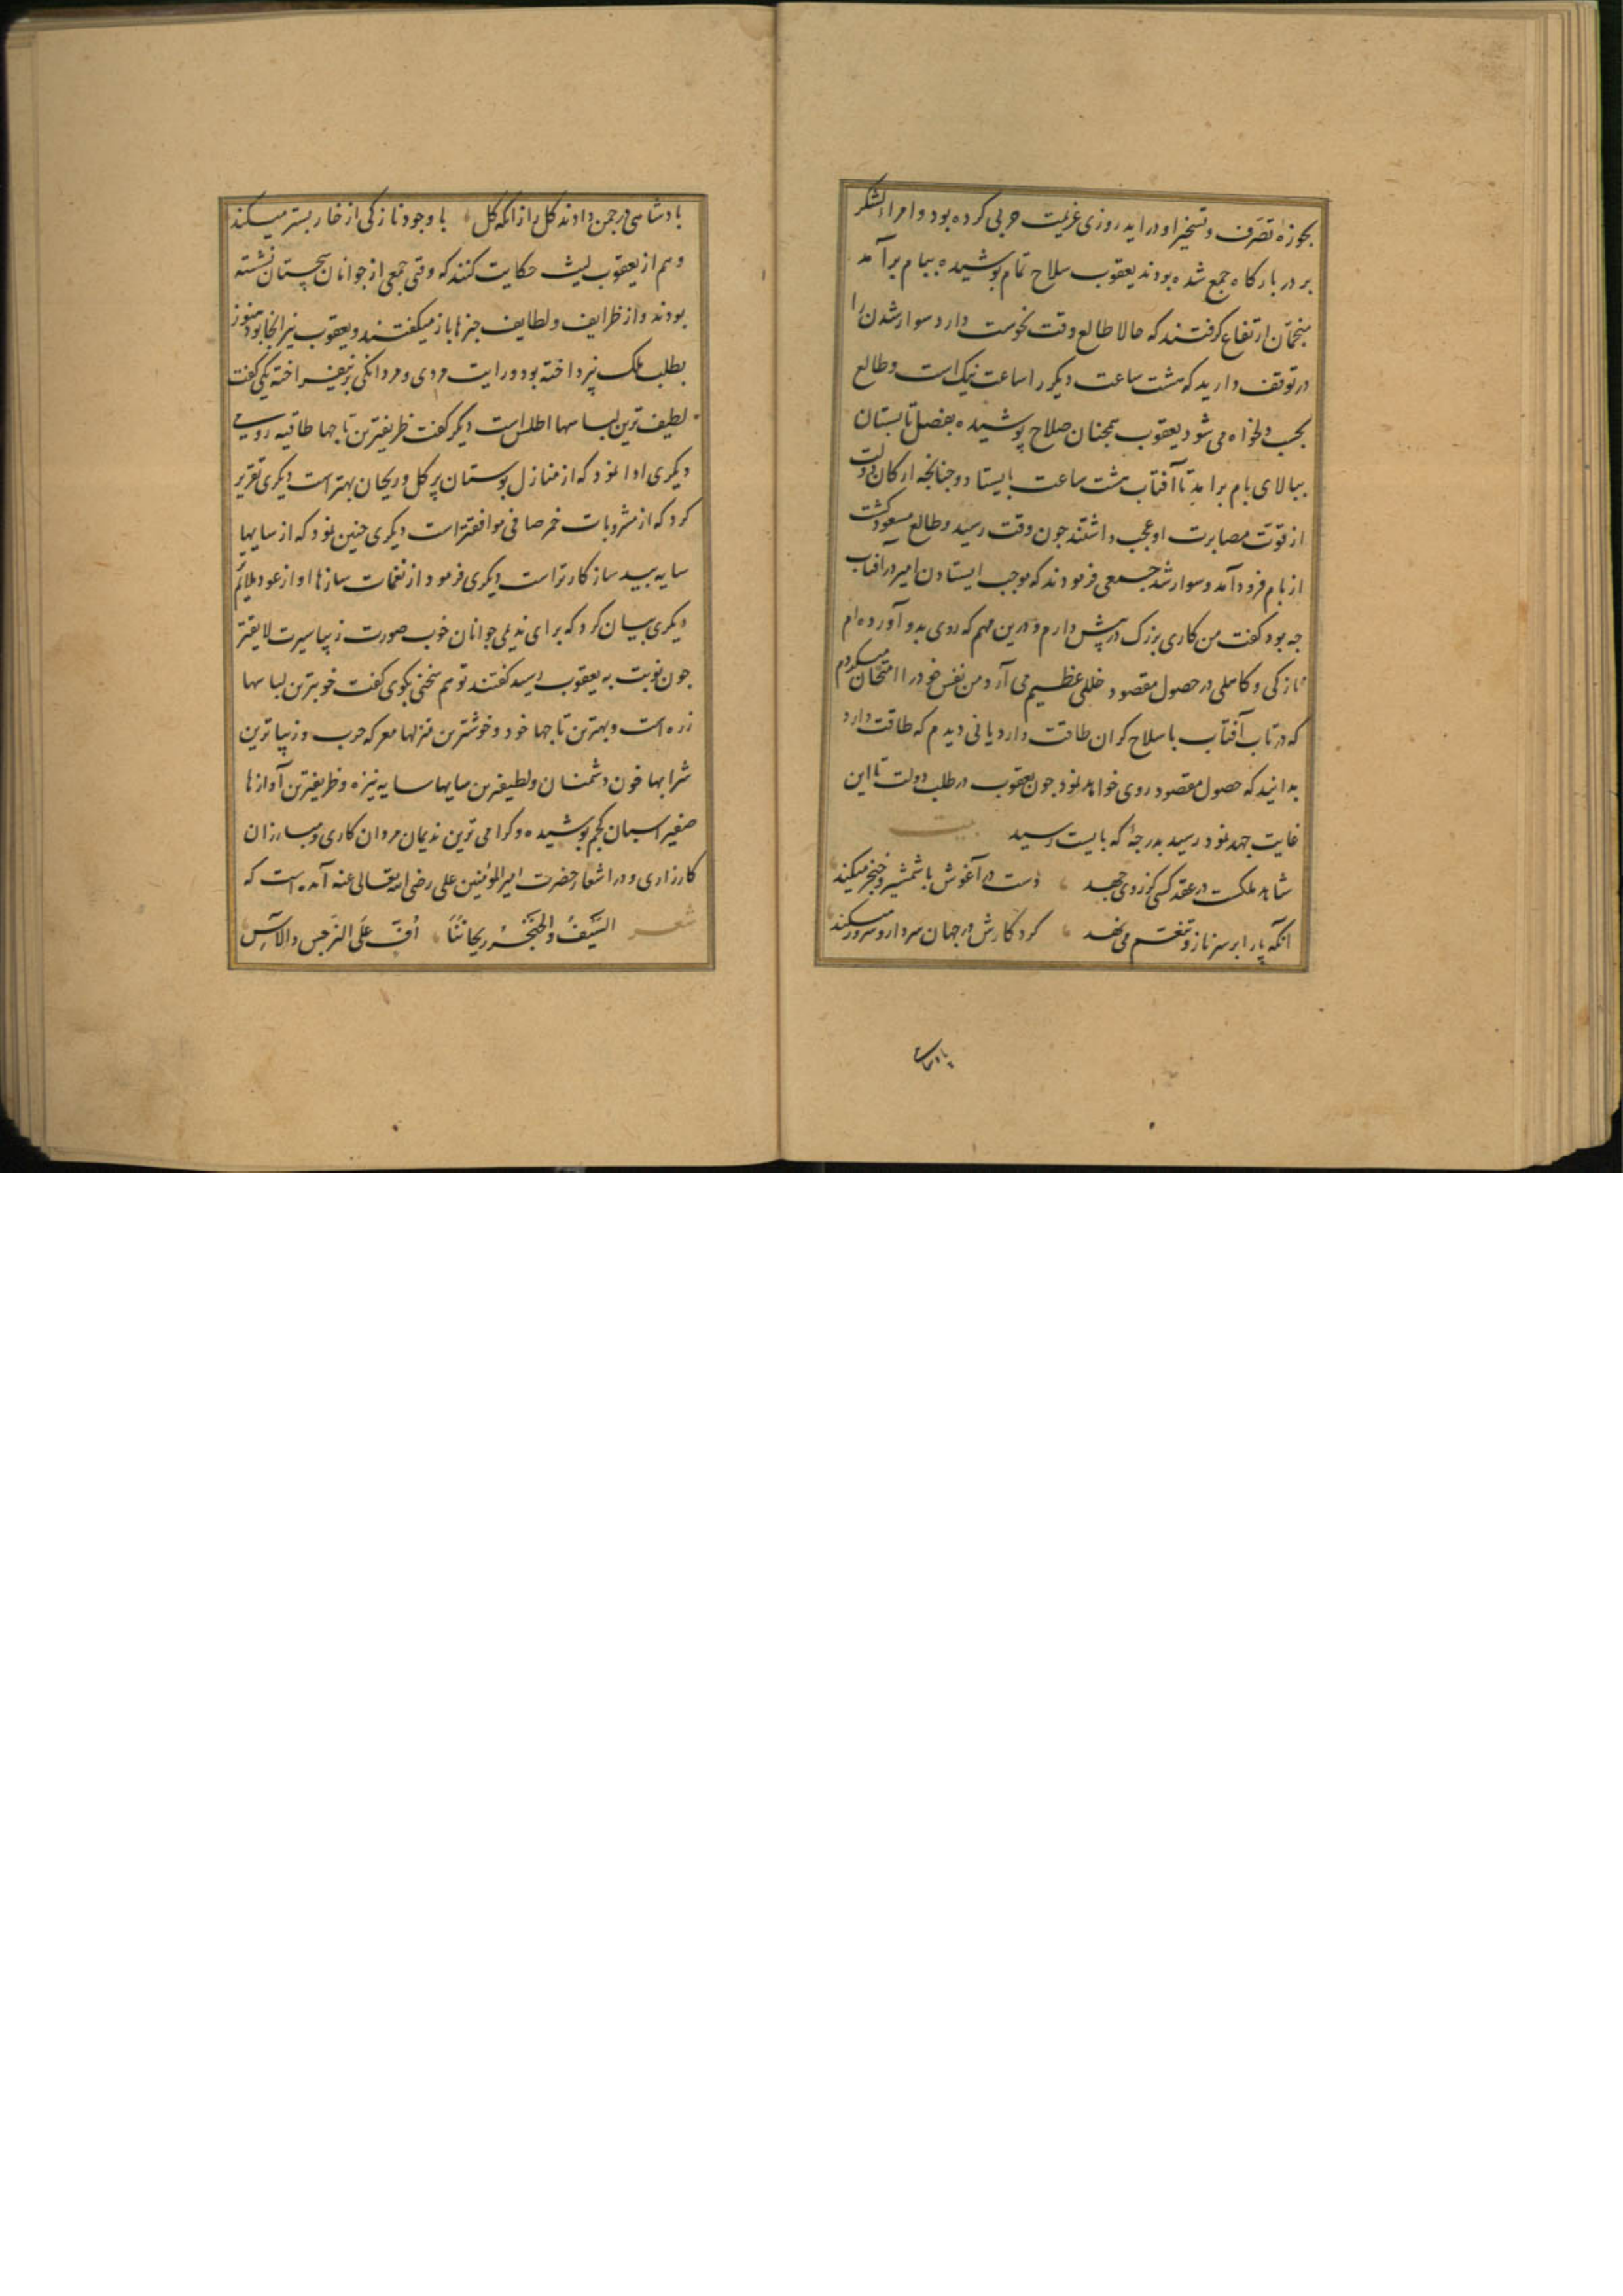 بحوزه تصرف و تسخیر او در اید روزی عزیمت حربی کرده بود و امراء لشکر
بر در بارکاه جمع شده بودند یعقوب سلاح تمام پوشیده ببام برآمد
منجمان ارتفاع کرفتند که حالا طالع وقت نحوست دارد سوار شدن را
در توقف دارید که هشت ساعت دیکر را ساعت نیک است و طالع
بحسب دلخواه می شود یعقوب همچنان صلاح پوشیده بفصل تابستان
ببالای بام برامد تا آفتاب هشت ساعت بایستاد و جنانجه ارکان دولت
از قوت مصابرت او عجب داشتند جون وقت رسید و طالع مسعود کشت
از بام فرود آمد و سوار شد جمعی فرمودند که موجب ایستادن امیر در افتاب
جه بود کفت من کاری بزرک در پیش دارم و درین مهم که روی بدو آورده ام
نازکی و کاهلی در حصول مقصود خللی عظیم می آرد من نفس خود را امتحان میکردم
که در تاب آفتاب با سلاح کران طاقت دارد یا نی دیدم که طاقت دارد
بدانید که حصول مقصود روی خواهد نمود جون یعقوب در طلب دولت تا این
غایت جهد نمود رسید بدرجهٔ که بایست رسید بیت
شاهد ملکت در عقد کسی کز روی جهد دست در آغوش با شمشیر و خنجر میکند
انکه پا را بر سر ناز و تنعم می نهد کردکارش در جهان سردار و سرور میکند
پادشاهی
بادشاهی در جمن دادند کل را ز انکه کل با وجود نازکی از خار بستر میکند
و هم از یعقوب لیث حکایت کنند که وقتی جمعی از جوانان سجستان نشسته
بودند و از ظرایف و لطایف جیزها باز میکفتند و یعقوب نیز انجا بود هنوز
بطلب ملک نپرداخته بود و رایت مردی و مردانکی بر نیفراخته یکی کفت
لطیف ترین لباسها اطلس است دیکر کفت ظریفترین تاجها طاقیه رومی
دیکری ادا نمود که از منازل بوستان پر کل و ریحان بهتر است دیکری تقریر
کرد که از مشروبات خمر صافی موافقتر است دیکری جنین نمود که از سایها
سایه بید سازکارتر است دیکری فرمود از نغمات سازها اواز عود ملایم
دیکری بیان کرد که برای ندیمی جوانان خوب صورت زیبا سیرت لایقتر
جون نوبت به یعقوب رسید کفتند تو هم سخنی بکوی کفت خوبترین لباسها
زره است و بهترین تاجها خود و خوشترین منزلها معرکه حرب و زیباترین
شرابها خون دشمنان و لطیفترین سایها سایه نیزه و ظریفترین آوازها
صفیر اسبان کجم پوشیده و کرامی ترین ندیمان مردان کاری و مبارزان
کارزاری و در اشعار حضرت امیر المؤمنین علی رضی الله تعالی عنه آمده است که
شعر السَّیفُ والخَنجَرُ ریحانُنَا اُفٍّ عَلَی النرَجِس والآسِ